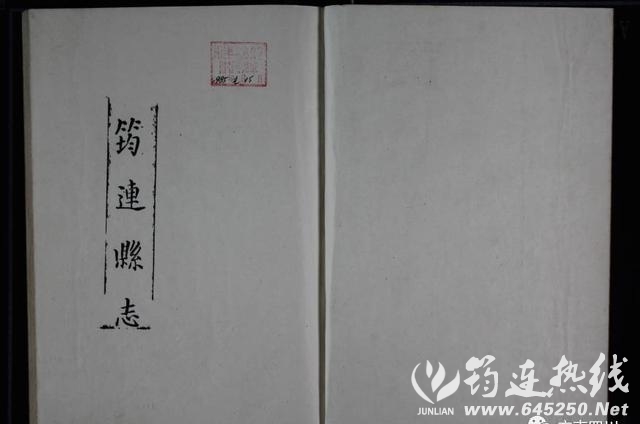 筠連縣志
筠连热线
JUNLIAN
www.645250.Net